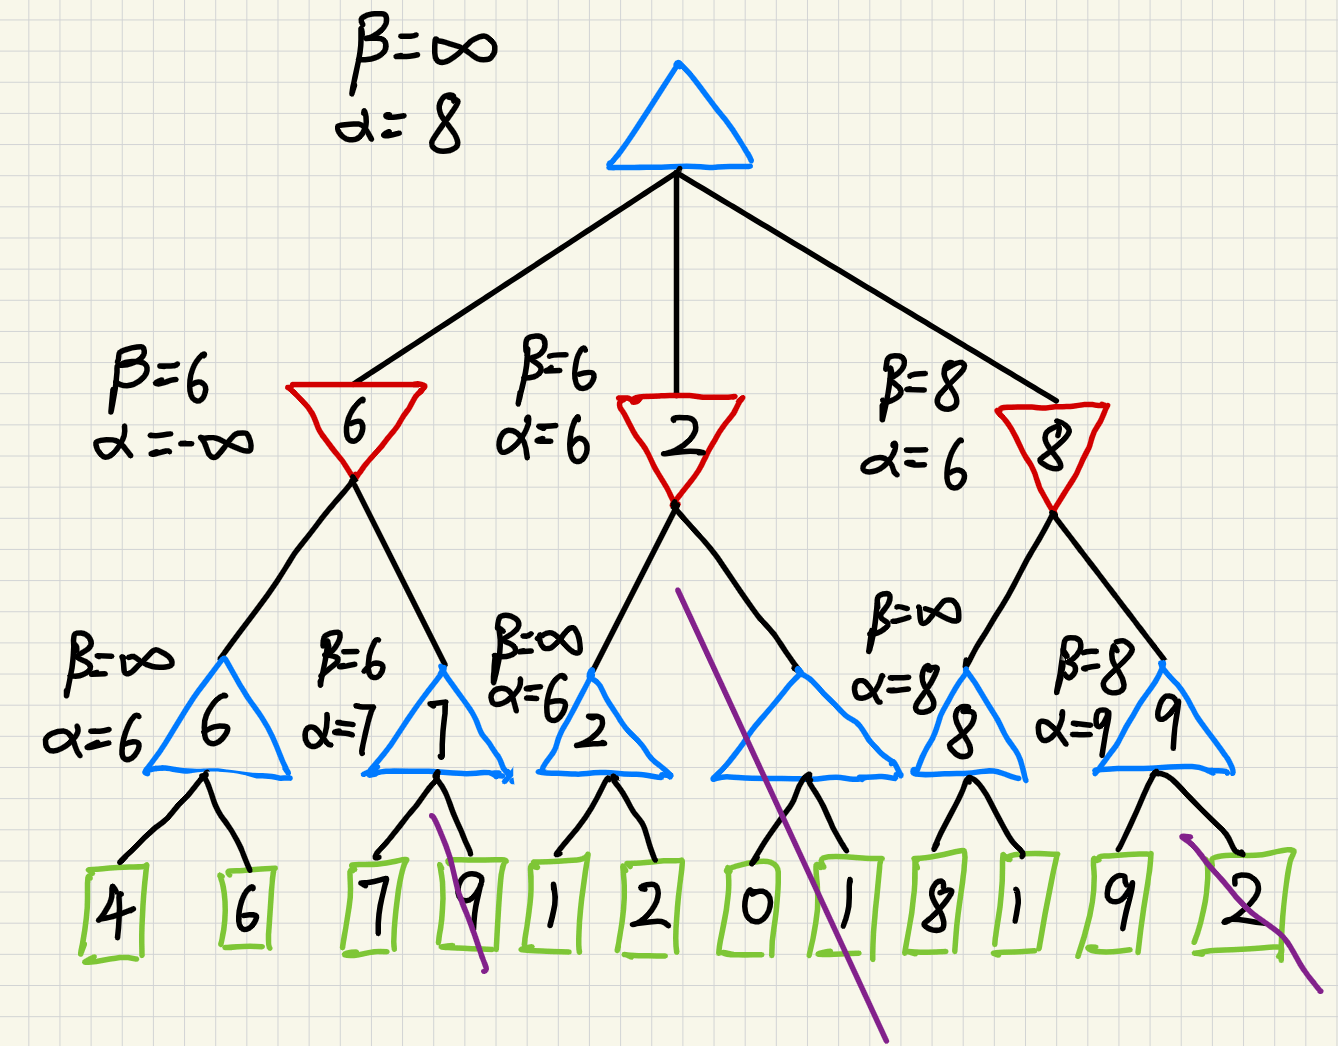 β=∞
α=8
β=6
α=-∞
6
β=6
α=6
2
β=8
α=6
8
β=∞
α=6
6
β=6
α=7
7
β=∞
α=6
2
β=∞
α=8
8
β=8
α=9
9
4
6
7
9
1
2
0
1
8
1
9
2